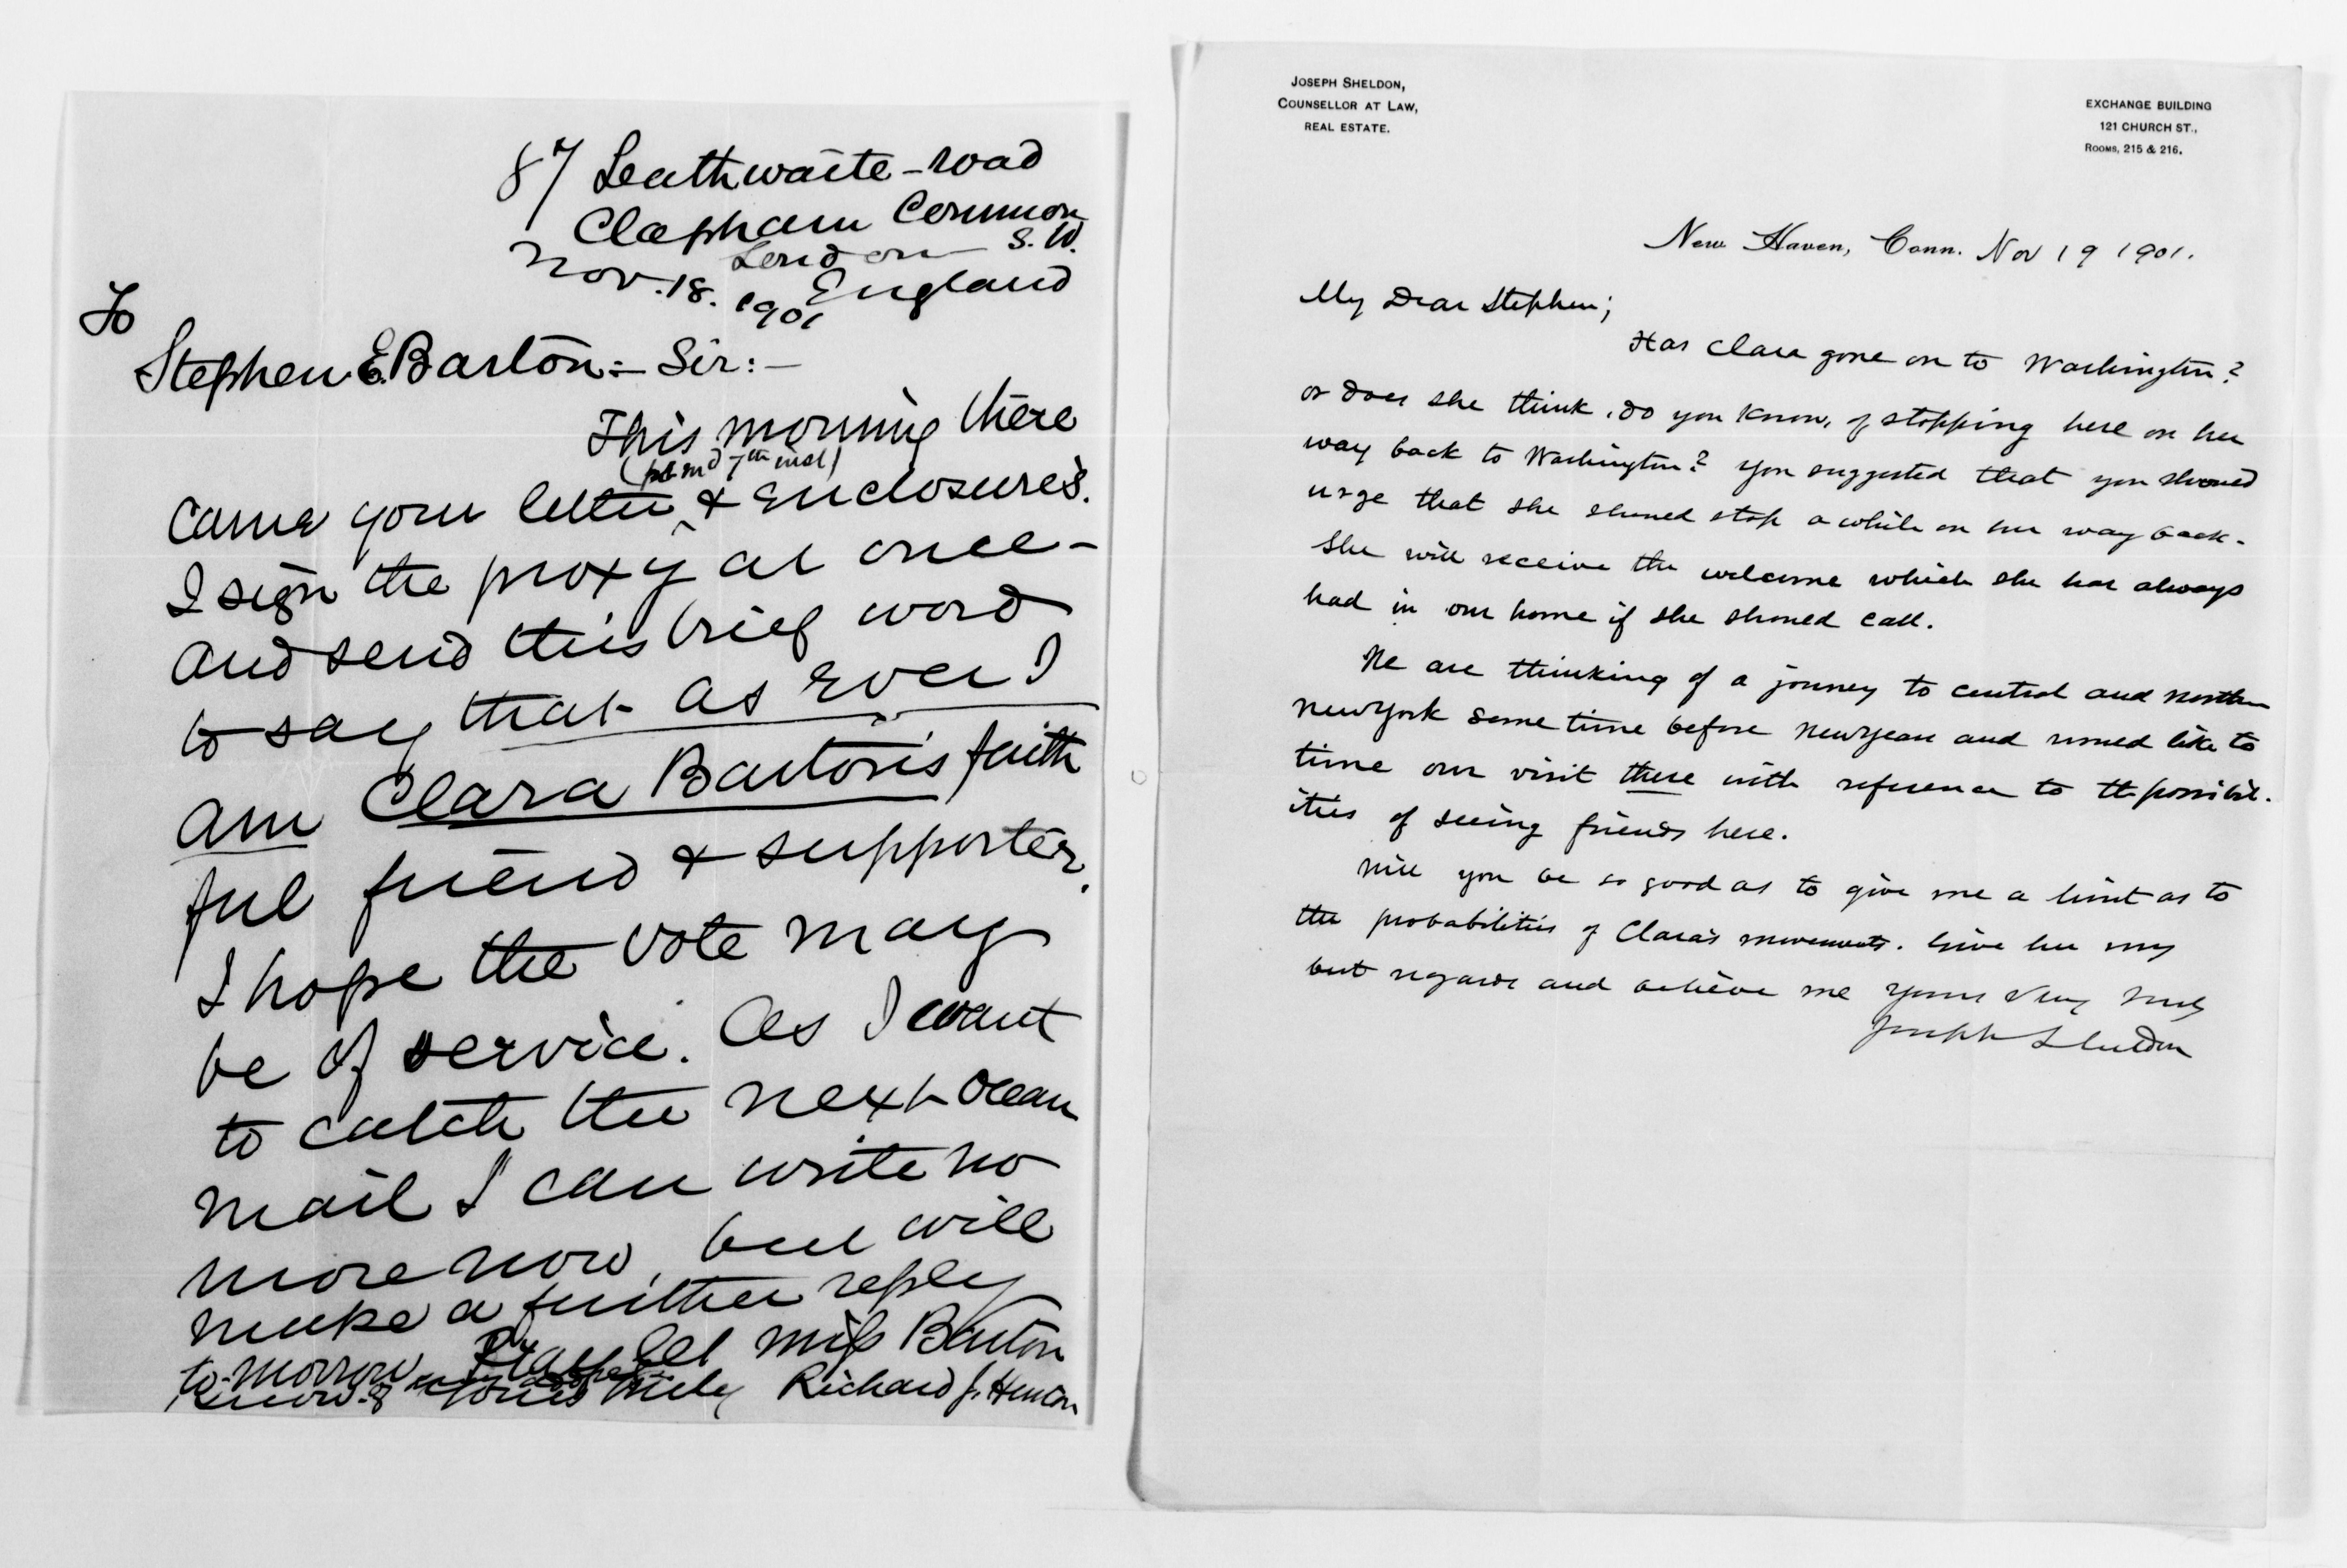 87 Leathwaite-road
Clapham Common
London S.W.
Nov. 18. 1901 England
To
Stephen E. Barton:- Sir:-
This morning there
(pkmd 7th inst)
came your letter & Enclosures.
I sign the proxy at once-
and send this brief word
to say that as ever I
am Clara Barton's faith
ful friend & supporter.
I hope the vote may
be of service. As I want
to catch the next Ocean
mail I can write no
more now, but will
make a further reply
to-morrow let Miss Barton
know. Yours truly Richard J. Hinton
JOSEPH SHELDON,
COUNSELLOR AT LAW,
REAL ESTATE.
EXCHANGE BUILDING
121 CHURCH ST.,
ROOMS, 215 & 216.
New Haven, Conn. Nov 19 1901.
My Dear Stephen;
Has Clara gone on to Washington?
or does she think, do you know, of stopping here on her
way back to Washington? You suggested that you should
urge that she should stop a while on her way back.
She will receive the welcome which she has always
had in our home if she should call.
We are thinking of a journey to central and northern
New York some time before New Year and would like to
time our visit there with reference to the possibil-
ities of seeing friends here.
Will you be so good as to give me a hint as to
the probabilities of Clara's movements. Give her my
best regards and believe me Yours Very truly
Joseph Sheldon